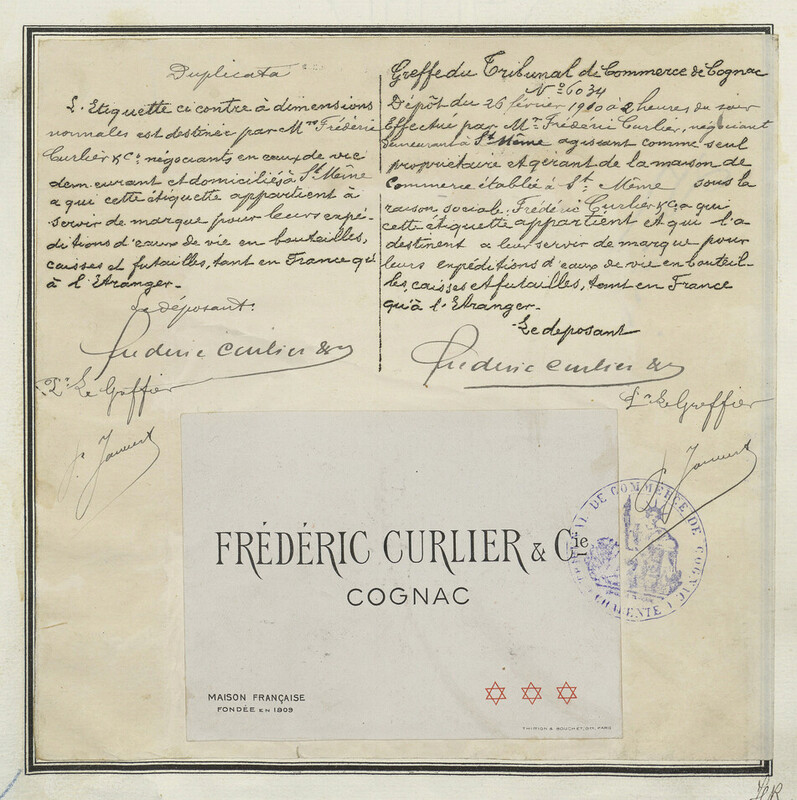 Duplicata
L'Etiquette ci contre à dimensions
normales est destinée par Mrs Frédéric
Curlier & Cie négociants en eaux de vie
demeurant et domiciliés à St Même
a qui cette étiquette appartient à
servir de marque pour leurs expé-
ditions d'eaux de vie en bouteilles,
caisses et futailles, tant en France qu'
à l'Etranger.-
Le déposant:
Frédéric Curlier & Cie
Pr Le Greffier
Greffe du Tribunal de Commerce de Cognac
No 6034
Dépôt du 26 février 1910 à 2 heures du soir
Effectué par Mr Frédéric Curlier, négociant
demeurant à St Même agissant comme seul
propriétaire et gérant de la maison de
Commerce établie à St. Même sous la
raison sociale: Frédéric Curlier & Cie a qui
cette étiquette appartient et qui l'a
destinent a leur servir de marque pour
leurs expéditions d'eaux de vie en bouteil-
les, caisses et futailles, tant en France
qu'à l'Etranger.-
Le deposant
Frédéric Curlier & Cie
Pr Le Greffier
TRIBUNAL DE COMMERCE DE COGNAC
CHARENTE
FRÉDÉRIC CURLIER & Cie
COGNAC
MAISON FRANÇAISE
FONDÉE EN 1809
THIRION & BOUCHET, PARIS